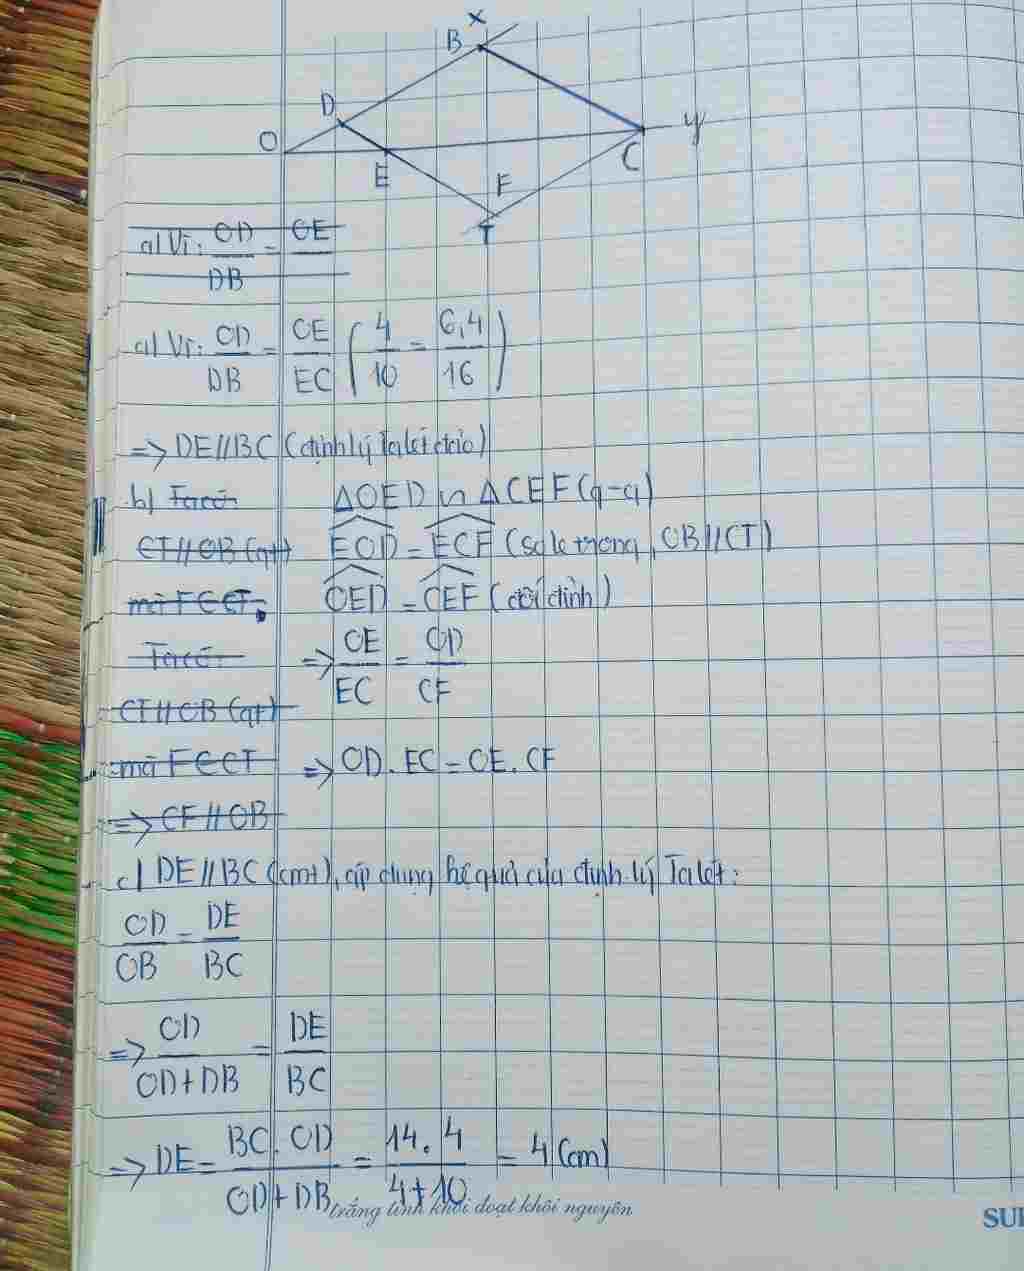 X
B
D
O
y
E
F
C
T
a) Vì: OD/DB = OE
a) Vì: OD/DB = OE/EC (4/10 = 6,4/16)
=> DE//BC (định lý Ta lét đảo)
b) Ta có: ΔOED ∽ ΔCEF (g-g)
CT//OB (gt) EOD = ECF (so le trong, OB//CT)
mà F ∈ CT, OED = CEF (đối đỉnh)
Ta có: => OE/EC = OD/CF
CT//OB (gt)
mà F ∈ CT => OD . EC = OE . CF
=> CF//OB
c) DE//BC (cmt), áp dụng hệ quả của định lý Ta lét:
OD/OB = DE/BC
=> OD/OD+DB = DE/BC
=> DE = BC . OD/OD+DB = 14.4/4+10 = 4 (cm)
trắng tinh khôi đoạt khôi nguyên